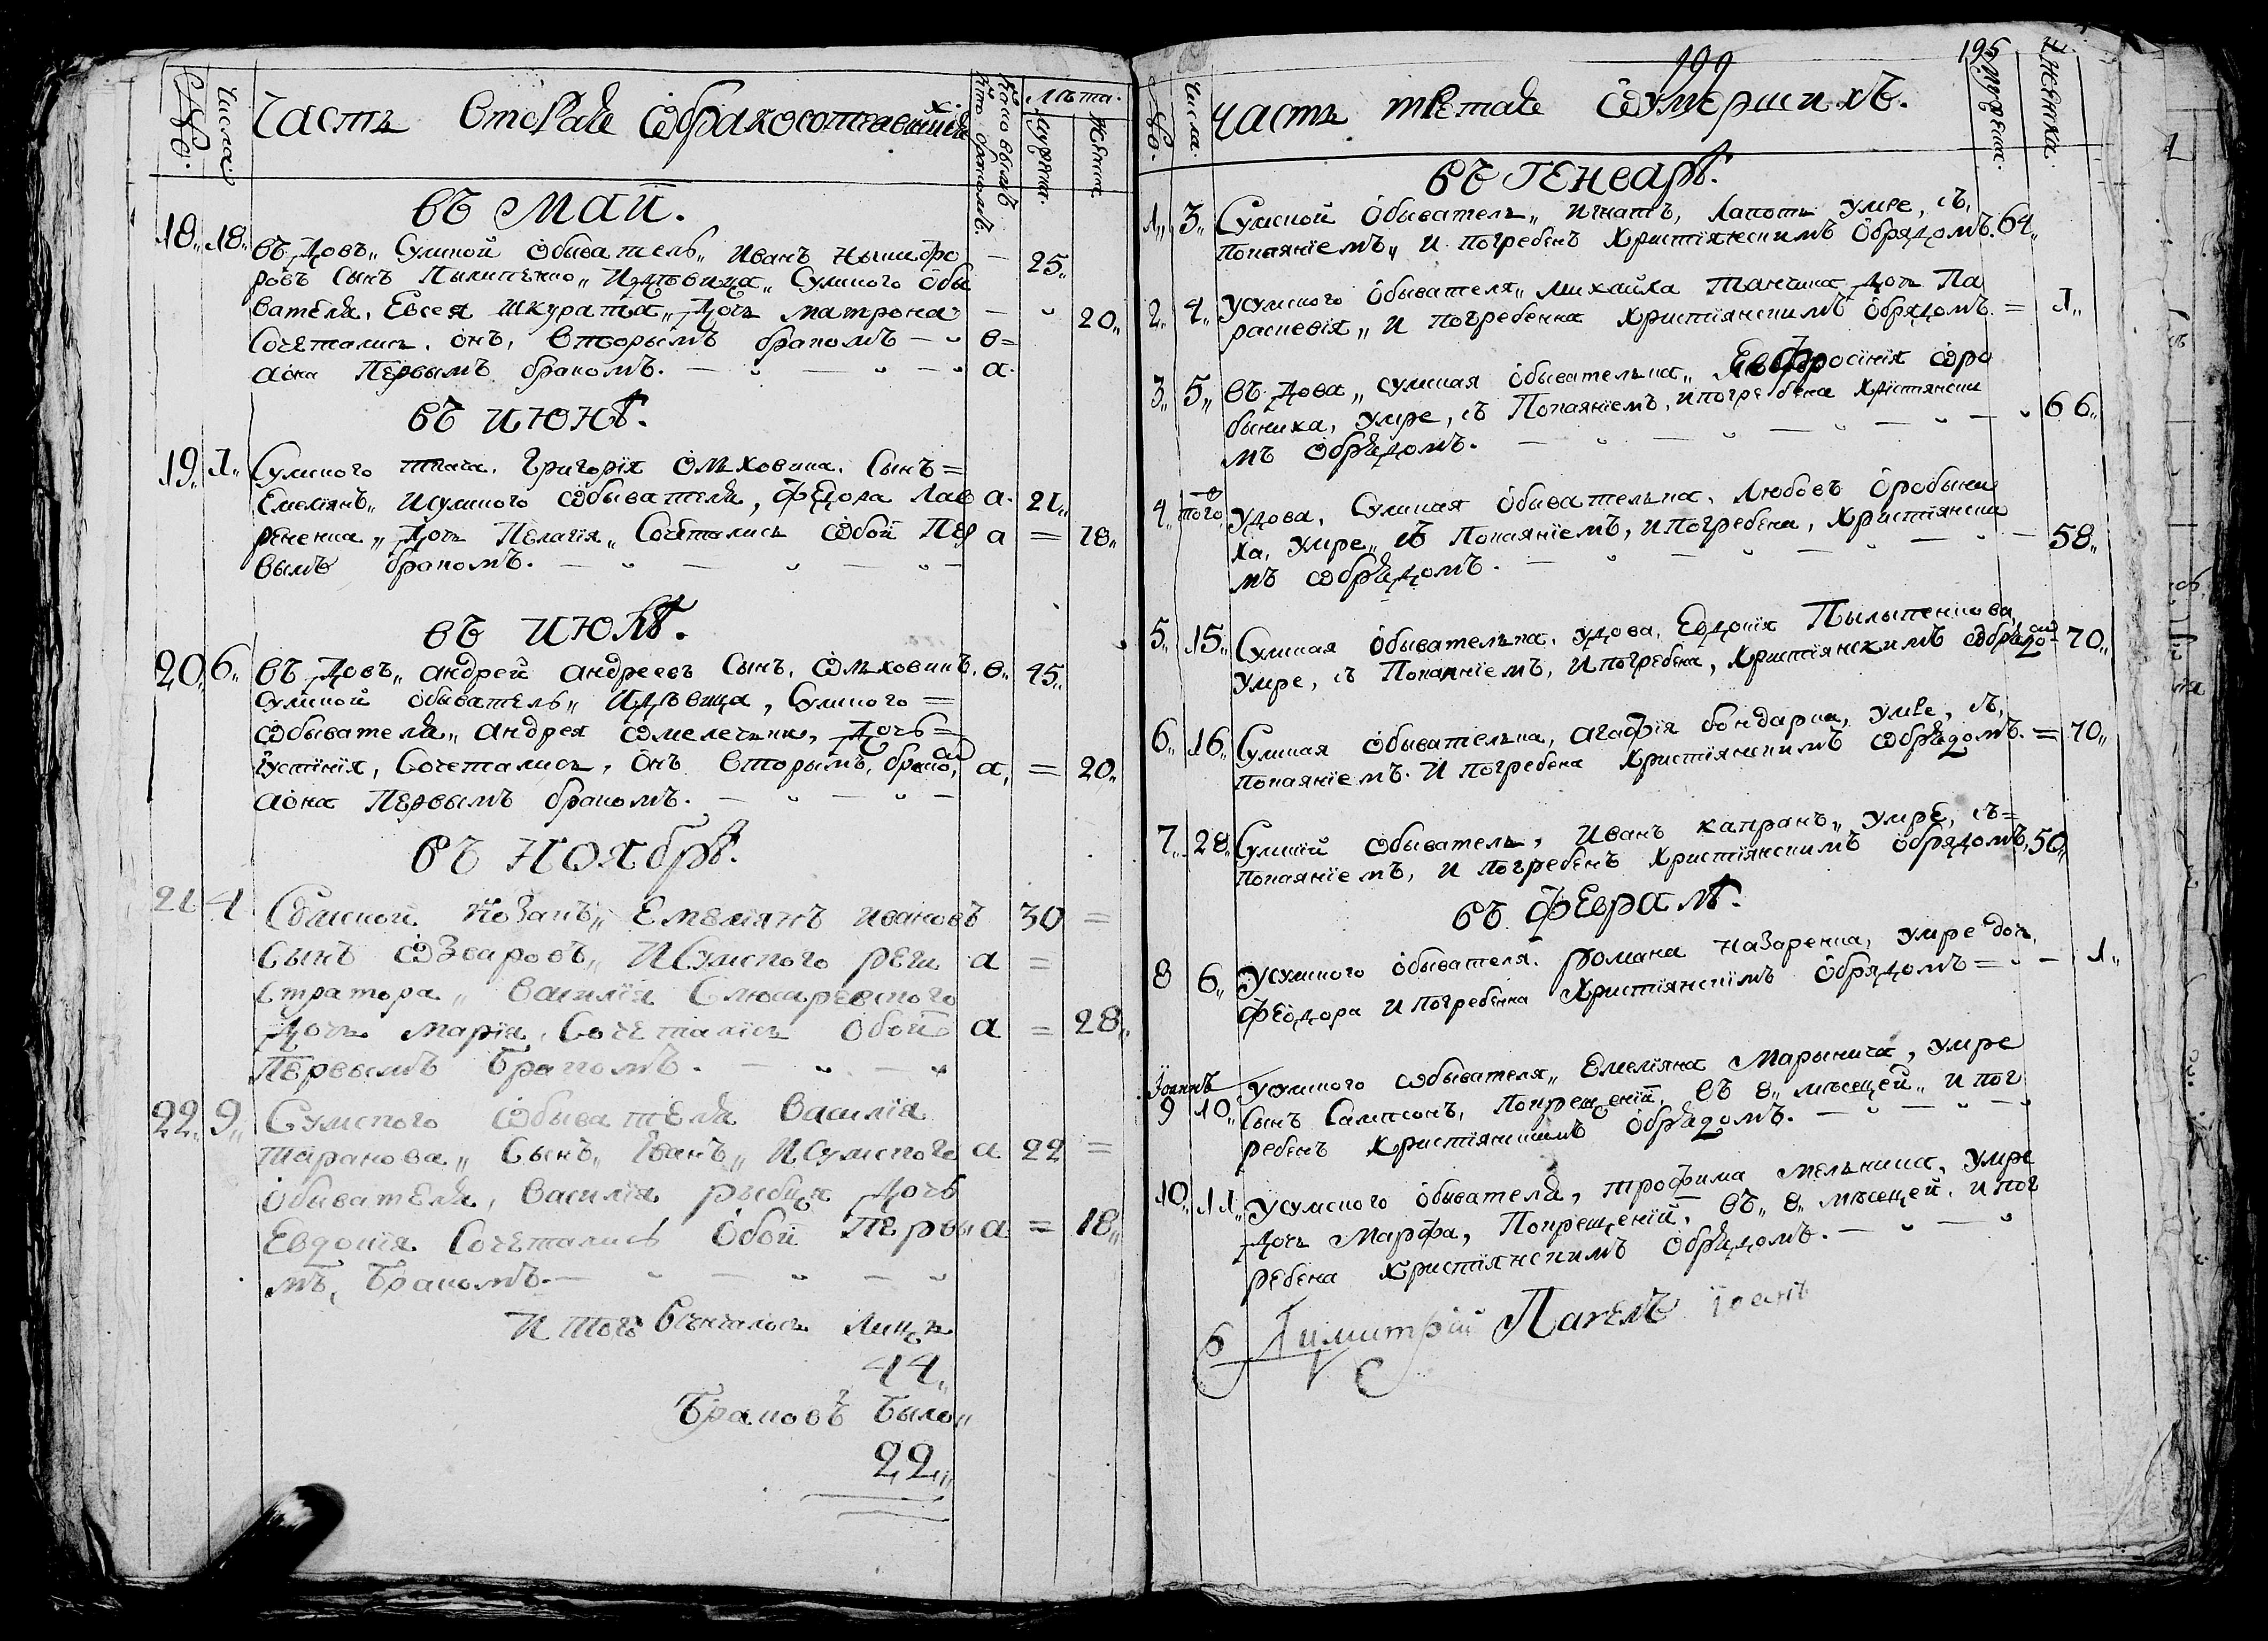 №.
числа.
Часть вторая ѡбракосотавшихся
кто каковымъ
бракомъ.
Лѣта.
мужеска.
женска
въ Маи.
18„ 18„ въ довъ„ Сумской Обыватель„ Иванъ Ничифо — 25„
ровъ сынъ Пылипенко„ И дѣвица„ Сумского Обы
вателя, Евсея Шкурата„ дочь Матрона — „ 20„
Сочетались. онъ, вторымъ бракомъ — „ в=
аона Первымъ бракомъ. — „ — „ — „ а.
въ ИЮНѢ.
19„ 1„ Сумского ткача. Григорїя Ѡлховика. Сынъ=
Емелїянъ„ Исумского ѡбывателя, Федора Лав а. 21„
рененка„ Дочь Пелагїя„ Сочетались ѡбои Пер а = 18„
вымъ бракомъ. — „ — „ — „ —
въ ИЮЛѢ.
20„ 6„ въ довъ„ андрей андреевъ Сынъ, Ѡлховикъ. в. 45„
сумской обыватель„ Идѣвица, Сумского =
ѡбывателя„ андрея Ѡмелечка, Дочь=
Іустинїя, Сочетались, Онъ вторымъ, брако, а, = 20„
аона Первымъ бракомъ. — „ — „ —
въ НОЯбрѢ.
21 4 Сумской козакъ„ Емелїянъ Ивановъ 30 =
сынъ Ѡзеровъ„ ИСумского реги а =
стратора„ Василїя Слюсаревского
Дочь Марїя, Сочетались Обои а = 28„
Первымъ Бракомъ. — „ — „
22„ 9„ Сумского Ѡбывателя Василїя
Таранова„ Сынъ„ Іванъ„ ИСумского а 22 =
обывателя, Василїя рыбця Дочь
Евдокїя Сочетались Обои Первы а = 18„
мъ, Бракомъ.— „ — „ — „
Итого Вѣнчалось Лицъ
44„
Браковъ Было„
22„
199
195
№.
числа.
часть третая Ѡумершихъ.
мужеска.
женска.
въ ГЕНварѢ.
1„ 3„ Сумской Обыватель„ Игнатъ, Лапоть умре, съ,
Покаянїемъ„ И погребенъ Христїянскимъ Обрядомъ. 64„
2„ 4„ Усумского Обывателя„ Михайла Ткачика дочь Па
раскевїя„ И погребенна Христїянскимъ Обрядомъ. = 1„
3„ 5„ въ дова„ сумская Обывателка„ Евфросїнїя Ѡро
быниха, умре, съ Покаянїемъ, ипогребена Христїянски
мъ Ѡбрядомъ. — „ — „ — „ — „ 66„
4„ того Удова, Сумская Обывателка, Любовъ Оробыни
ха, Умре„ съ Покаянїемъ, ипогребена, Христїянски
мъ ѡбрядомъ. — „ — „ — „ — „ — 58„
5„ 15„ Сумская Обывателка, удова, Евдокїя Пылыпенкова,
Умре, съ Покаянїемъ, ипогребена, Христїянскимъ ѡбрядо 70„
6„ 16„ Сумская Обывателка, Агафїя бондарка, умре, съ,
покаянїемъ. И погребена Христїянскимъ ѡбрядомъ. = 70„
7„ 28„ Сумскїй ѡбыватель, Иванъ капранъ„ умре, съ=
покаянїемъ, и погребенъ Христїянскимъ обрядомъ, 50„
въ ФЕвралѢ.
8 6„ Усумского Обывателя. Романа Назаренка, умре доч,
Феодора ипогребенна Христїянскїмъ Обрядомъ = „ — 1„
Іоаннъ
9 10„ Усумского ѡбывателя„ Емелїяна Марынича, умре
Сынъ Сампсонъ, Покрещенїи, въ 8„ мѣсецей„ и пог
ребенъ Христїянскимъ Обрядомъ. — „ — „ —
10„ 11„ Усумского Обывателя, Трофима Мелника, Умре
дочь Марфа, Покрещенїи, въ„ 8„ мѣсецей, и пог
ребена Христїянскимъ Обрядомъ. — „ — „
6 Димитрїй Павелъ Іоанъ